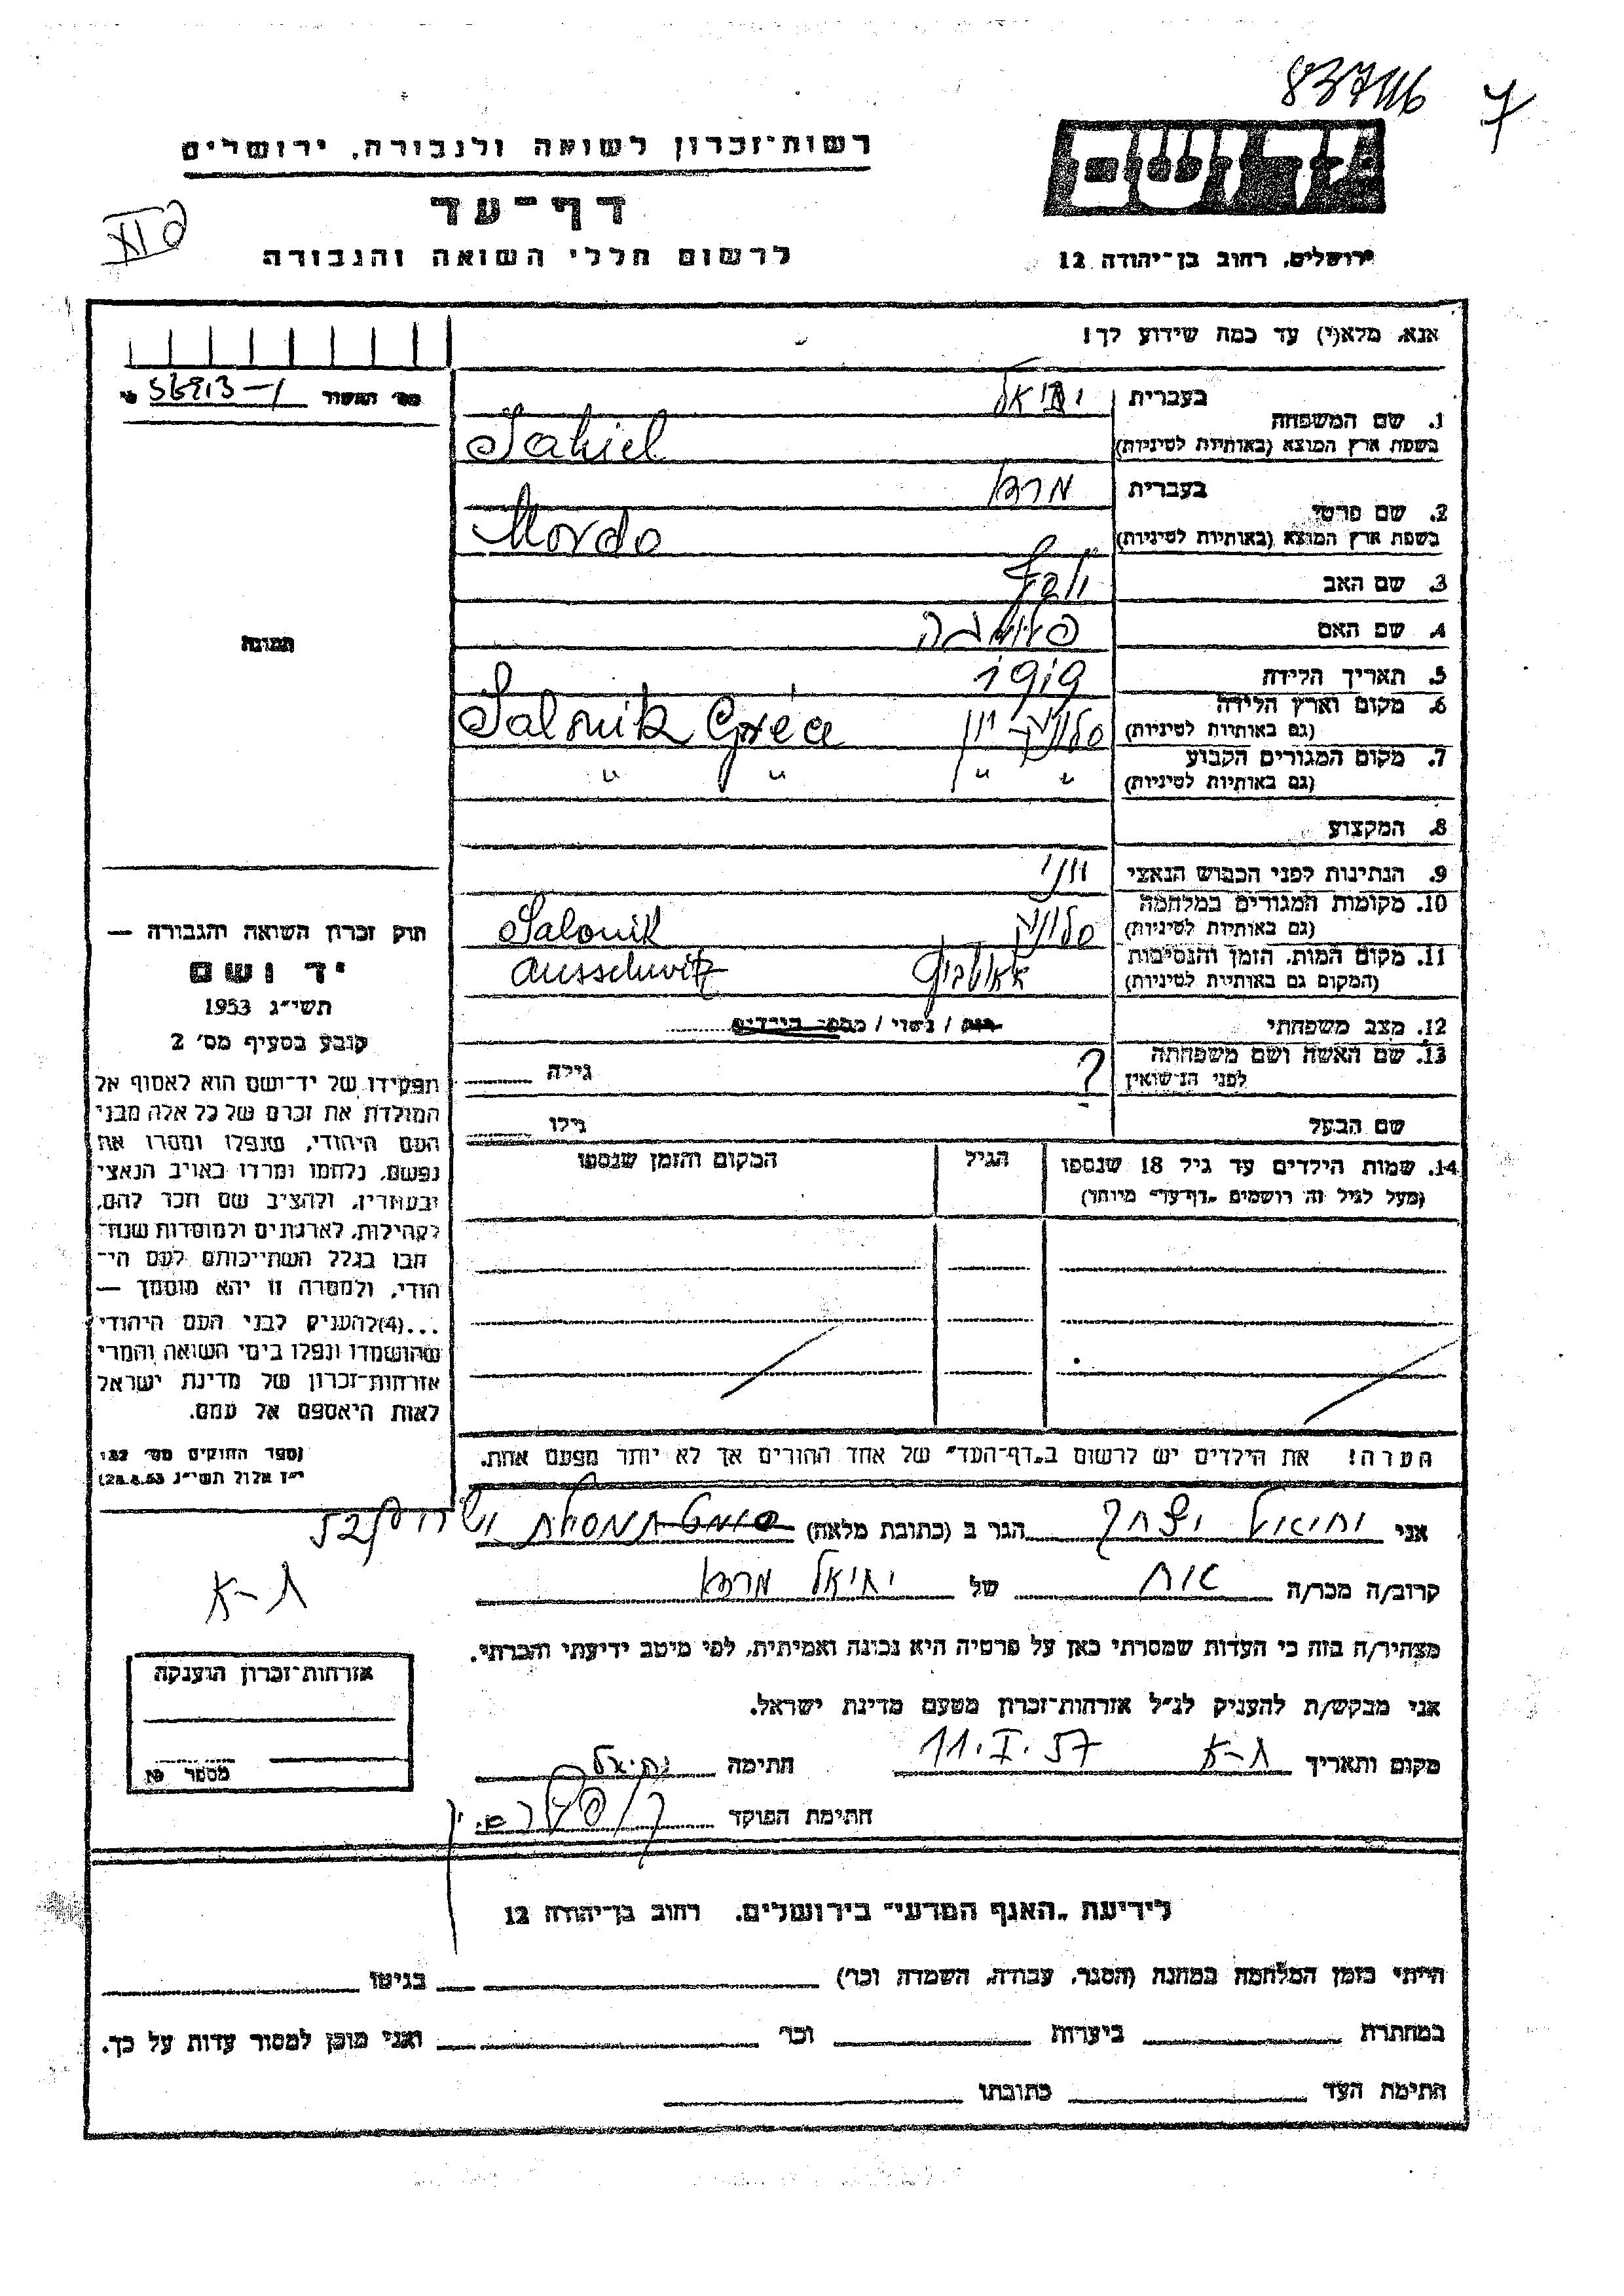 83746 7
רשות־זכרון לשואה ולגבורה, ירושלים
דף־עד
לרשום חללי השואה והגבורה
יד ושם
ירושלים, רחוב בן־יהודה 12
אנא, מלא(י) עד כמה שידוע לך!
מס׳ האשור 56913-1
1. שם המשפחה בעברית יחיאל
בשפת ארץ המוצא (באותיות לטיניות) Jahiel
2. שם פרטי בעברית מרדו
בשפת ארץ המוצא (באותיות לטיניות) Mordo
3. שם האב
4. שם האם
5. תאריך הלידה 1919
6. מקום וארץ הלידה (גם באותיות לטיניות) סלוניק יון Salonik Grèce
7. מקום המגורים הקבוע (גם באותיות לטיניות) " " " "
8. המקצוע
9. הנתינות לפני הכבוש הנאצי יוני
10. מקומות המגורים במלחמה (גם באותיות לטיניות) סלוניק Salonik
11. מקום המות, הזמן והנסיבות (המקום גם באותיות לטיניות) אאושביץ Ausschwitz
12. מצב משפחתי רוק / נשוי / מספר הילדים
13. שם האשה ושם משפחתה לפני הנשואין ? גילה
שם הבעל גילו
14. שמות הילדים עד גיל 18 שנספו הגיל המקום והזמן שנספו
(מעל לגיל זה רושמים „דף־עד״ מיוחד)
הערה! את הילדים יש לרשום ב„דף־העד״ של אחד ההורים אך לא יותר מפעם אחת.
תמונה
חוק זכרון השואה והגבורה —
יד ושם
תשי״ג 1953
קובע בסעיף מס׳ 2
תפקידו של יד־ושם הוא לאסוף אל
המולדת את זכרם של כל אלה מבני
העם היהודי, שנפלו ומסרו את
נפשם, נלחמו ומרדו באויב הנאצי
ובעוזריו, ולהציב שם וזכר להם,
לקהילות, לארגונים ולמוסדות שנח־
רבו בגלל השתייכותם לעם הי־
הודי, ולמטרה זו יהא מוסמך —
...(4)להעניק לבני העם היהודי
שהושמדו ונפלו בימי השואה והמרי
אזרחות־זכרון של מדינת ישראל
לאות היאספם אל עמם.
(ספר החוקים מס׳ 132
י״ז אלול תשי״ג 28.8.53)
אני יחיאל יצחק הגר ב (כתובת מלאה)
קרוב/ה מכר/ה אח של יחיאל מרדו
ת-א
מצהיר/ה בזה כי העדות שמסרתי כאן על פרטיה היא נכונה ואמיתית, לפי מיטב ידיעתי והכרתי.
אני מבקש/ת להעניק לנ״ל אזרחות־זכרון מטעם מדינת ישראל.
מקום ותאריך ת-א 11.I.57 חתימה יחיאל
חתימת הפוקד
אזרחות־זכרון הוענקה
מספר
לידיעת „האגף המדעי״ בירושלים, רחוב בן־יהודה 12
הייתי בזמן המלחמה במחנה (הסגר, עבודה, השמדה וכו׳) בגיטו
במחתרת ביערות וכו׳ ואני מוכן למסור עדות על כך.
חתימת העד כתובתו